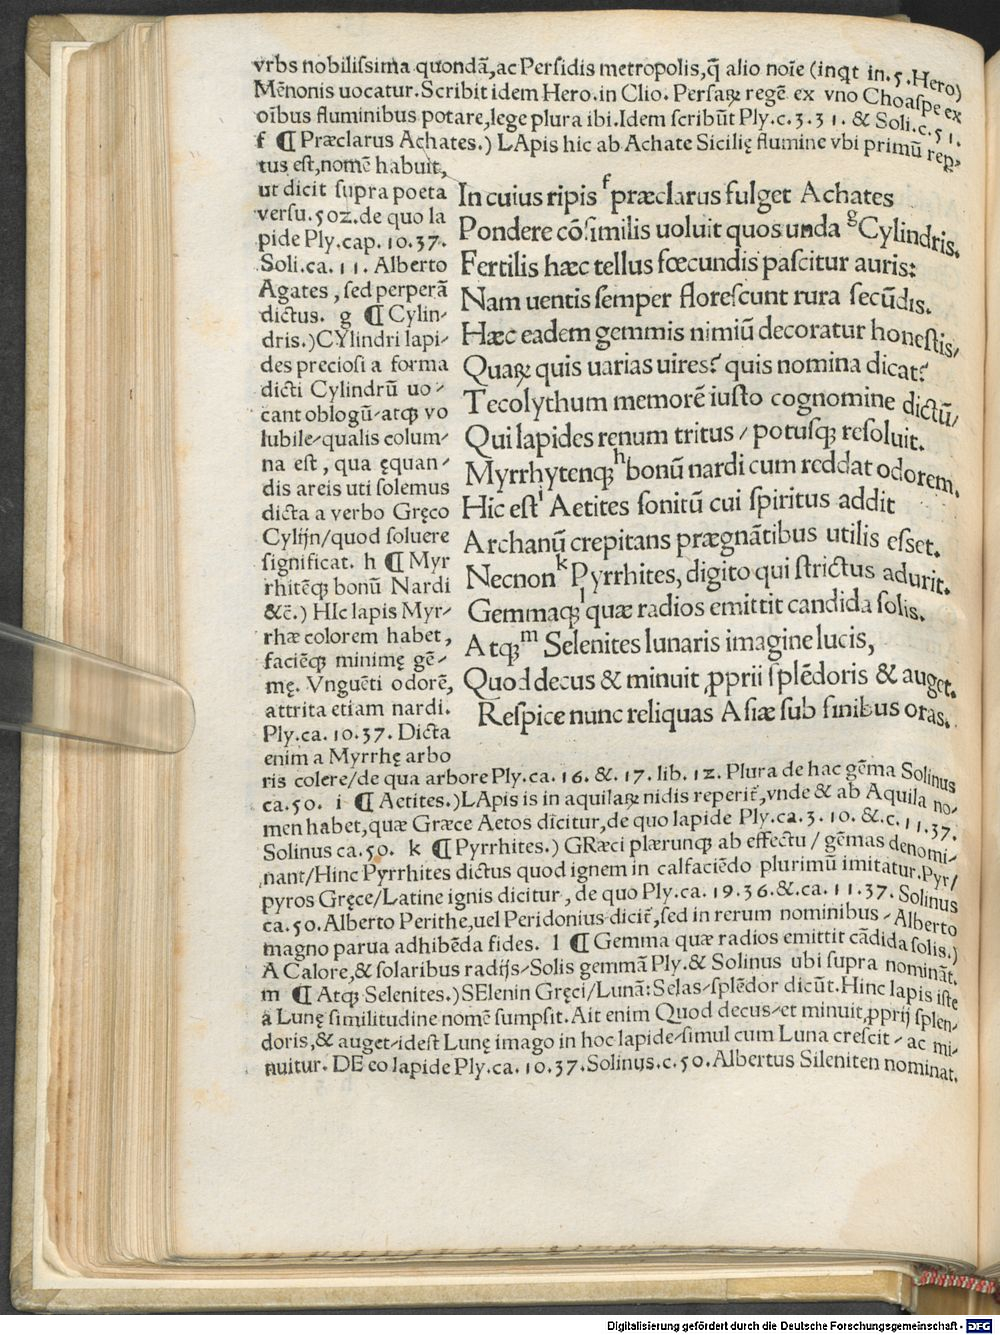 vrbs nobilissima quondā,ac Persidis metropolis,q̄ alio noīe (inqt in.5.Hero)
Mēnonis uocatur.Scribit idem Hero.in Clio. Persaꝝ regē ex vno Choaspe ex
oībus fluminibus potare,lege plura ibi.Idem scribūt Ply.c.3.31. & Soli.c.51.
f ¶ Præclarus Achates.) LApis hic ab Achate Sicilię flumine vbi primū rep-
tus est,nomē habuit,
ut dicit supra poeta
versu.502.de quo la
pide Ply.cap. 10.37.
Soli.ca. 11. Alberto
Agates, sed perperā
dictus. g ¶ Cylin-
dris.)CYlindri lapi-
des preciosi a forma
dicti Cylindrū uo-
cant oblogū/atqꝫ vo
lubile/qualis colum-
na est, qua ęquan-
dis areis uti solemus
dicta a verbo Gręco
Cylijn/quod soluere
significat. h ¶ Myr
rhitēqꝫ bonū Nardi
&c̄.) HIc lapis Myr-
rhæ colorem habet,
faciēqꝫ minimę gē-
mę. Vnguēti odorē,
attrita etiam nardi.
Ply.ca. 10.37. Dicta
enim a Myrrhę arbo
In cuius ripis f præclarus fulget Achates
Pondere cōsimilis uoluit quos unda g Cylindris.
Fertilis hæc tellus fœcundis pascitur auris:
Nam uentis semper florescunt rura secūdis.
Hæc eadem gemmis nimiū decoratur honestis/
Quaꝝ quis uarias uires? quis nomina dicat?
Tecolythum memorē iusto cognomine dictū/
Qui lapides renum tritus / potusqꝫ resoluit.
Myrrhytenqꝫ h bonū nardi cum reddat odorem.
Hic est i Aetites sonitū cui spiritus addit
Archanū crepitans prægnātibus utilis esset.
Necnon k Pyrrhites, digito qui strictus adurit.
Gemmaqꝫ l quæ radios emittit candida solis.
Atqꝫ m Selenites lunaris imagine lucis,
Quod decus & minuit ꝓprii splēdoris & auget.
Respice nunc reliquas Asiæ sub finibus oras.
ris colere/de qua arbore Ply.ca. 16. &. 17. lib. 12. Plura de hac gēma Solinus
ca.50. i ¶ Aetites.)LApis is in aquilaꝝ nidis reperit̄,vnde & ab Aquila no-
men habet,quæ Græce Aetos dicitur,de quo lapide Ply.ca.3.10. &.c.11.37.
Solinus ca.50. k ¶ Pyrrhites.) GRæci plærunqꝫ ab effectu / gēmas denomi-
nant/Hinc Pyrrhites dictus quod ignem in calfaciēdo plurimū imitatur.Pyr/
pyros Gręce/Latine ignis dicitur, de quo Ply.ca. 19.36.&.ca. 11.37. Solinus
ca.50.Alberto Perithe,uel Peridonius dicit̄,sed in rerum nominibus / Alberto
magno parua adhibēda fides. l ¶ Gemma quæ radios emittit cādida solis.)
A Calore,& solaribus radijs/Solis gemmā Ply.& Solinus ubi supra nomināt.
m ¶ Atqꝫ Selenites.)SElenin Gręci/Lunā:Selas/splēdor dicūt.Hinc lapis iste
a Lunę similitudine nomē sumpsit.Ait enim Quod decus/et minuit,ꝓprij splen-
doris,& auget/idest Lunę imago in hoc lapide/simul cum Luna crescit / ac mi-
nuitur. DE eo lapide Ply.ca. 10.37.Solinus.c.50.Albertus Sileniten nominat.
Digitalisierung gefördert durch die Deutsche Forschungsgemeinschaft - DFG